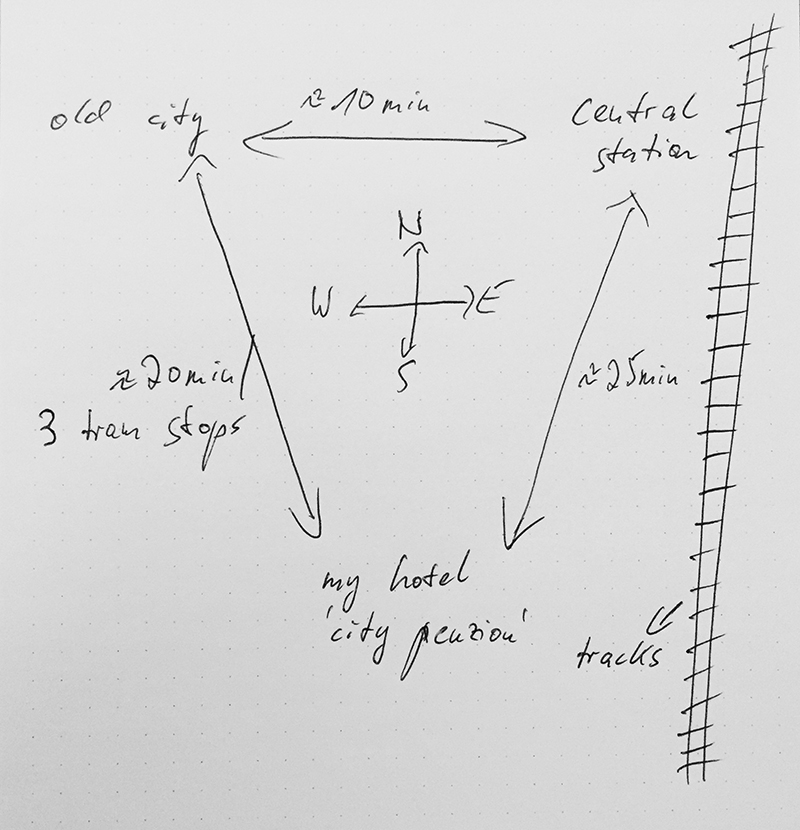 old city
≈ 10 min
Central
station
N
W
E
S
≈ 20 min/
3 tram stops
≈ 25 min
my hotel
'city penzion'
tracks